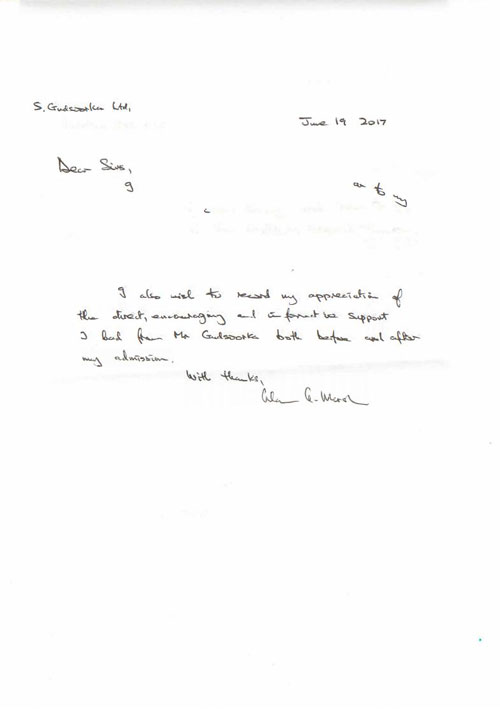 S. Gudsoorkar Ltd,
June 19 2017
Dear Sirs,
as to my
I also wish to record my appreciation of
the direct, encouraging and informative support
I had from Mr Gudsoorkar both before and after
my admission.
With thanks,